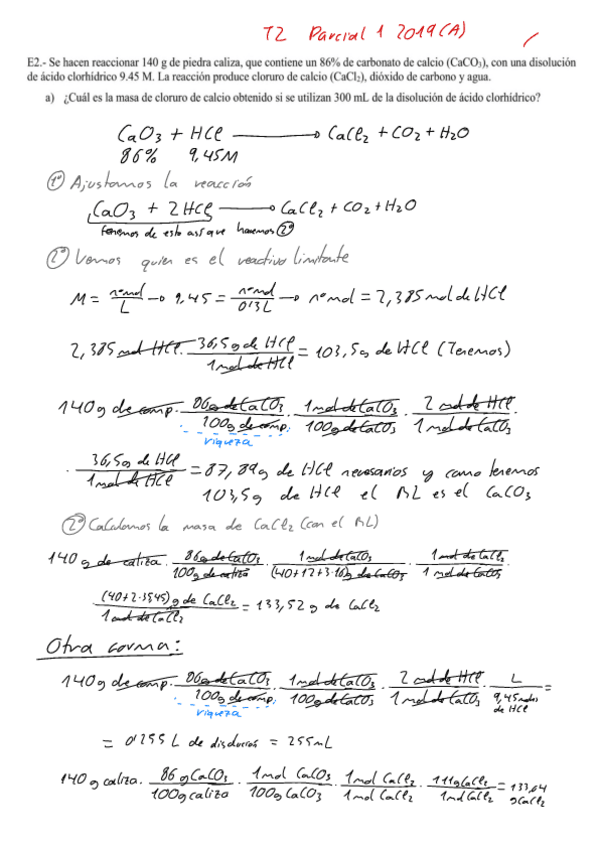 T2 Parcial 1 2019 (A)
E2.- Se hacen reaccionar 140 g de piedra caliza, que contiene un 86% de carbonato de calcio (CaCO₃), con una disolución
de ácido clorhídrico 9.45 M. La reacción produce cloruro de calcio (CaCl₂), dióxido de carbono y agua.
a) ¿Cuál es la masa de cloruro de calcio obtenido si se utilizan 300 mL de la disolución de ácido clorhídrico?
CaO₃ + HCl → CaCl₂ + CO₂ + H₂O
86% 9,45M
1º Ajustamos la reacción
CaO₃ + 2HCl → CaCl₂ + CO₂ + H₂O
tenemos de esto así que hacemos 2º
2º Vemos quien es el reactivo limitante
M = nº mol / L → 9,45 = nº mol / 0'3L → nº mol = 2,385 mol de HCl
2,385 mol HCl · 36,5g de HCl / 1 mol de HCl = 103,5g de HCl (Tenemos)
140g de comp. · 86g de CaCO₃ / 100g de comp. · 1 mol de CaCO₃ / 100g de CaCO₃ · 2 mol de HCl / 1 mol de CaCO₃ ·
riqueza
· 36,5g de HCl / 1 mol de HCl = 87,89g de HCl necesarios y como tenemos
103,5g de HCl el RL es el CaCO₃
2º Calculamos la masa de CaCl₂ (con el RL)
140 g de caliza · 86g de CaCO₃ / 100g de caliza · 1 mol de CaCO₃ / (40+12+3·16)g de CaCO₃ · 1 mol de CaCl₂ / 1 mol de CaCO₃
(40+2·35'45)g de CaCl₂ / 1 mol de CaCl₂ = 133,52 g de CaCl₂
Otra forma:
140g de comp. · 86g de CaCO₃ / 100g de comp. · 1 mol de CaCO₃ / 100g de CaCO₃ · 2 mol de HCl / 1 mol de CaCO₃ · L / 9,45 moles de HCl =
riqueza
= 0'255 L de disolución = 255mL
140 g caliza · 86 g CaCO₃ / 100g caliza · 1 mol CaCO₃ / 100g CaCO₃ · 1 mol CaCl₂ / 1 mol CaCl₂ · 111g CaCl₂ / 1 mol CaCl₂ = 133,64 g CaCl₂